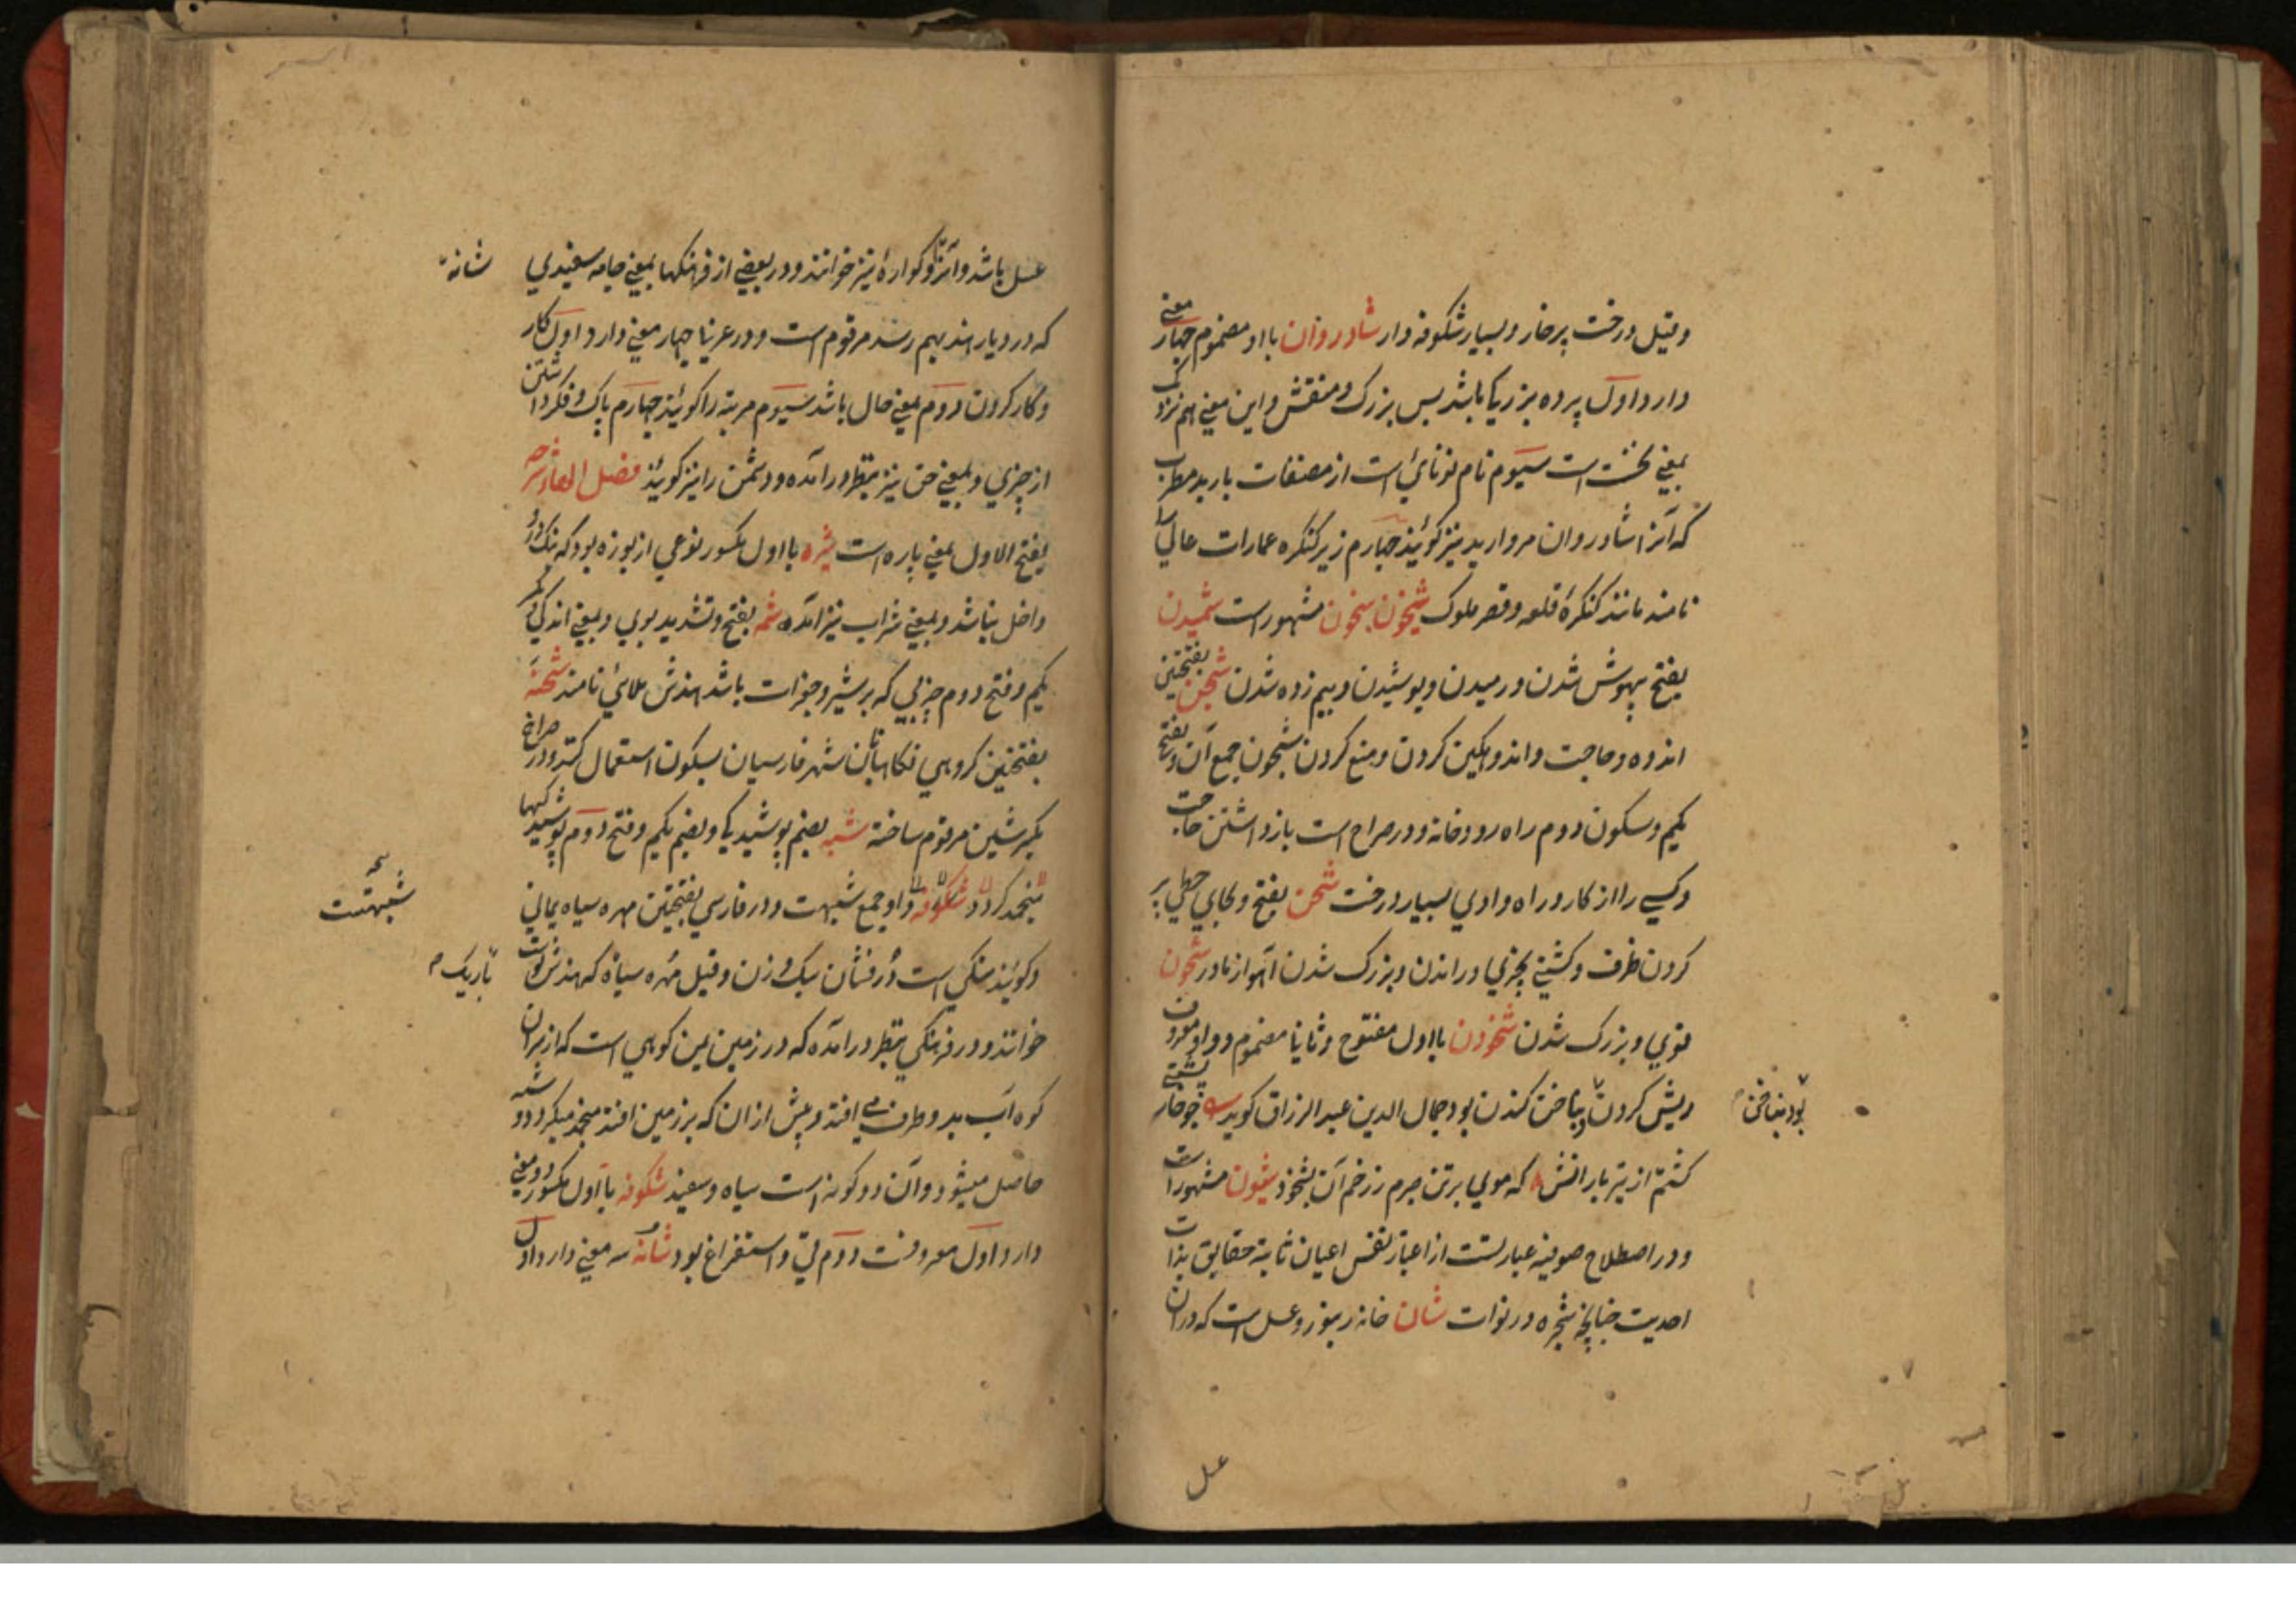 وقیل درخت پرخار و بسیار شکوفه دار شادروان بااو مضموم چهار معنی
دارد اول پرده بزرگ باشد بس بزرگ و منقش و این معنی هم نزد
بمعنی تخت است سیوم نام نوائی است از مصنفات باربد مطرب
که آنرا شادروان مروارید نیز گویند چهارم زیر کنکره عمارات عالی را
نامند مانند کنکرهٔ قلعه و قصر ملوک شیخون مشهور است شمیدن
بفتح بیهوش شدن و رمیدن و پوشیدن و بیم زده شدن شجن بفتحتین
اندوه و حاجت و اندوهکین کردن و منع کردن شجون جمع آن و بفتح
یکم و سکون دوم راه رودخانه و در صراح است بازداشتن حاجت
وکسی را از کار و راه وادی بسیار درخت شحن بفتح و بحای حطی پر
کردن ظرف و کشتی بچیزی و راندن و بزرک شدن آهو از مادر شحون
قوی و بزرک شدن شخودن بااول مفتوح و ثانی مضموم و واو معروف
ریش کردن بناخن کندن بود جمال الدین عبد الرزاق کوید چو خار پشتی
کشتم از تیر بارانش که موی برتن جرم ززخم آن بشخود شیون مشهور است
و در اصطلاح صوفیه عبارتست از اعتبار نفس اعیان ثابته حقایق بذات
احدیت چنانچه شجره در نوات شان خانه زنبور عسل است که در آن
بود بناخن
عسل
عسل باشد و آنرا کوارهٔ نیز خوانند و در بعضی از فرهنکها بمعنی جامه سفیدی
شانه
که در دیار هند بهم رسد مرقوم است و در عربی چهار معنی دارد اول کار
وکار کردن دوم بمعنی حال باشد سیوم مرتبه را کویند چهارم پاک و فکر داشتن
از چیزی و بمعنی حق نیز بنظر در آمده و دشمن را نیز کویند فصل الهاء شرحه
بفتح الاول بمعنی پاره است بااول مکسور نوعی از بوزه بود که بنک درو
داخل باشد و بمعنی شراب نیز آمده شمه بفتح و تشدید بوی و بمعنی اندکی
یکم و فتح دوم چربی که بر شیر و جغرات باشد هندش ملائی نامند شحنه
بفتحتین کروهی نکاهبانان شهر فارسیان بسکون استعمال کنند و در صراح
بکسر شین مرقوم ساخته شبه بضم پوشیدکی و بضم یکم و فتح دوم پوشیدکیها
شکوفه و او جمع شبهت و در فارسی بفتحتین مهره سیاه یمانی
شبهتست
وکویند سنکی است درفشان سبک وزن و قیل مهره سیاه که هندش
تاریک
خوانند و در فرهنکی بنظر در آمده که در زمین یمن کوهی است که از بر آن
کوه آب بدو طرف می افتد و پیش ازان که بر زمین افتد منجمد میکردد و شبه
حاصل میشود و آن دو کونه است سیاه و سفید شکوفه بااول مکسور دو معنی
دارد اول معروفست دوم قی و استفراغ بود شانه سه معنی دارد اول